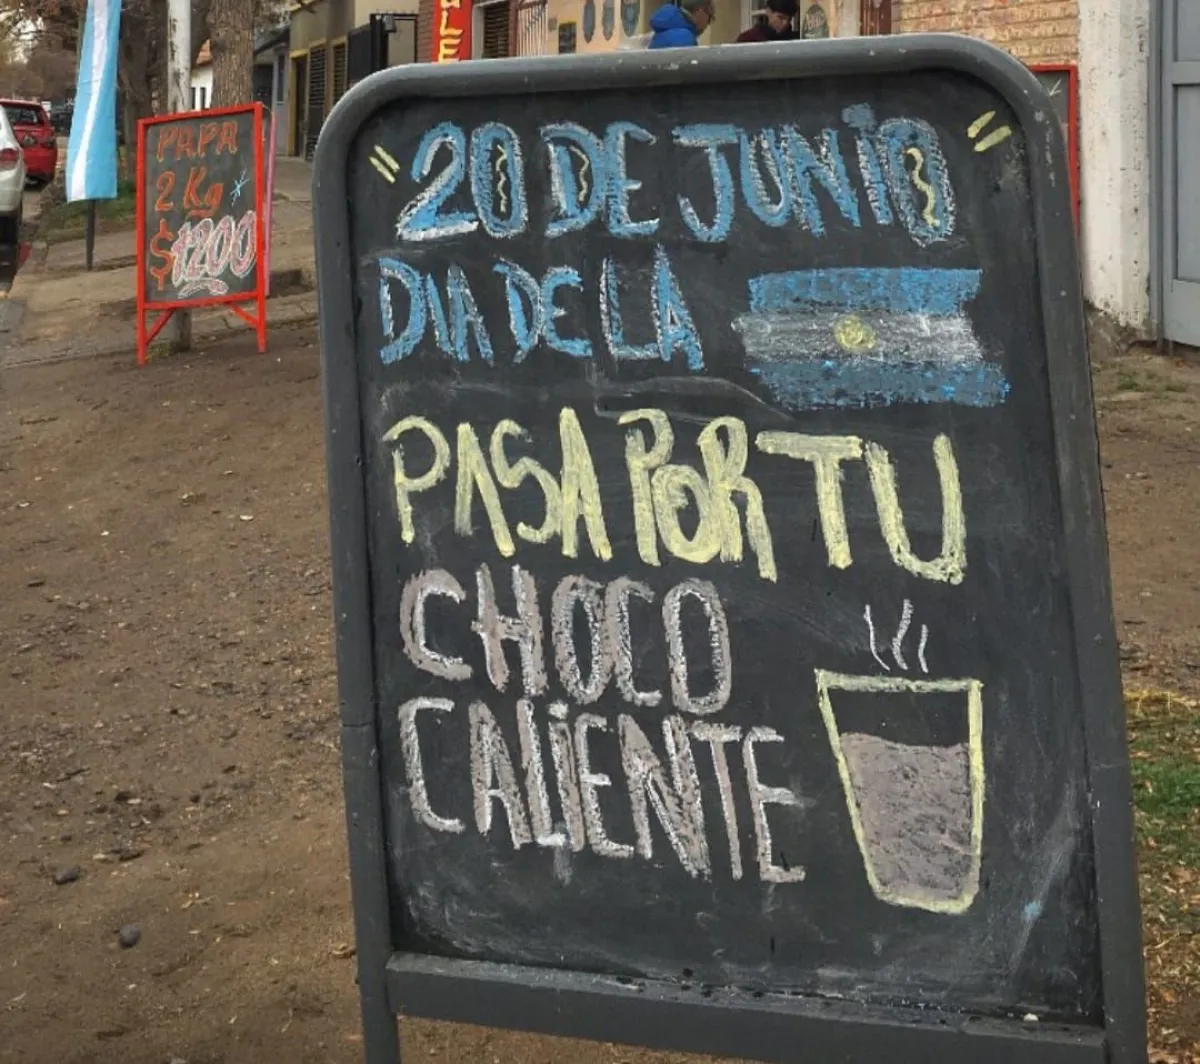 "20 DE JUNIO"
DIA DE LA
PASA POR TU
CHOCO
CALIENTE
PAPA
2 Kg
$1200